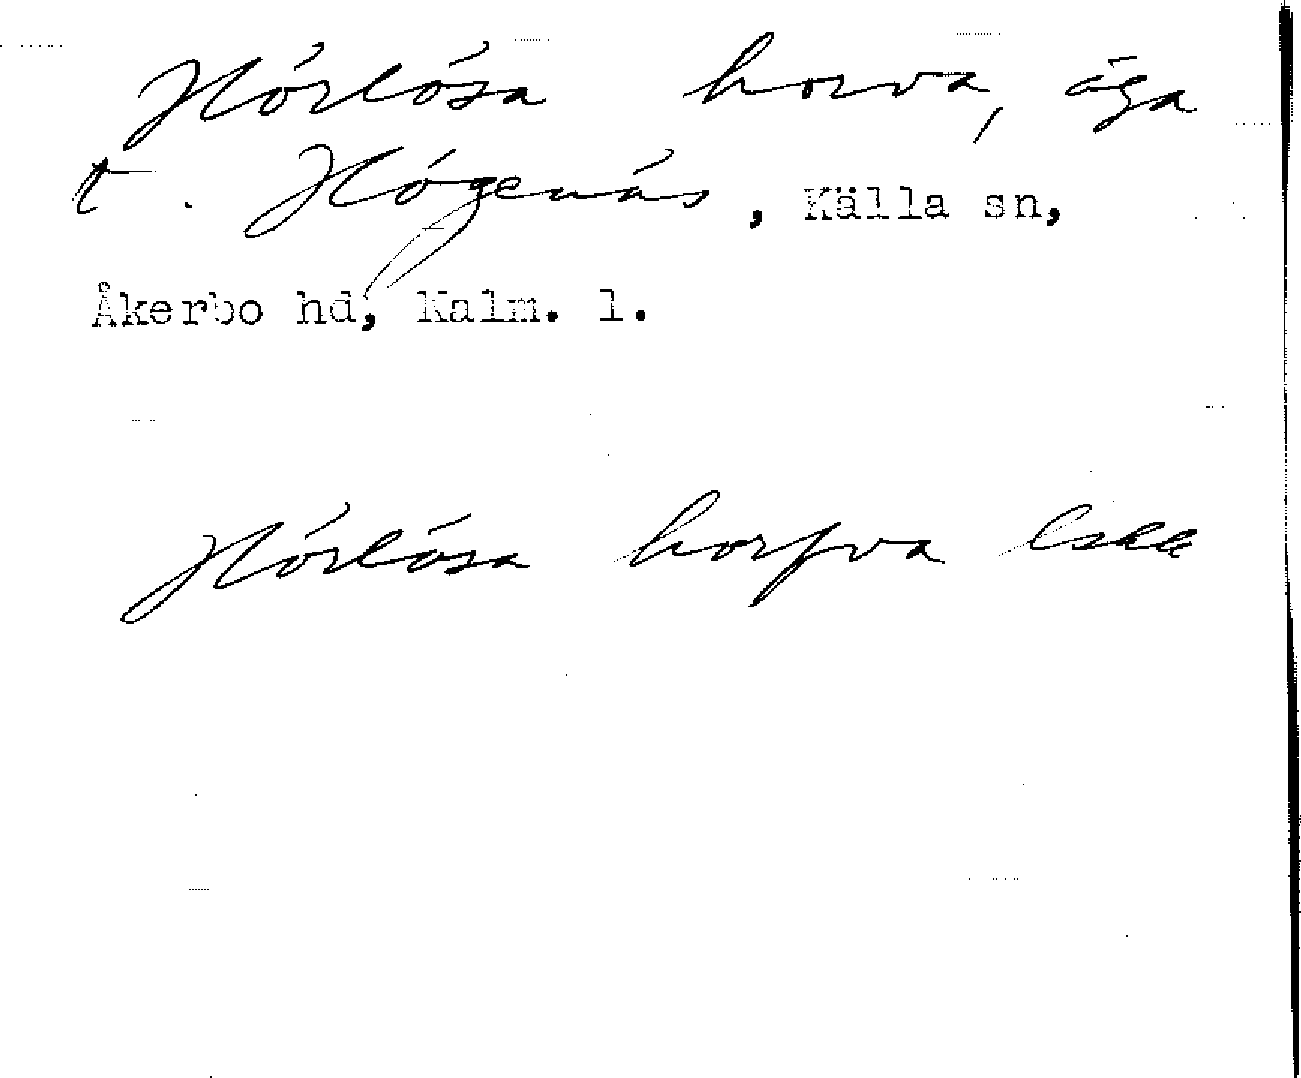 Hörlösa horva, äga
t. Högenäs, Källa sn,
Åkerbo hd, Kalm. l.
Hörlösa horfva